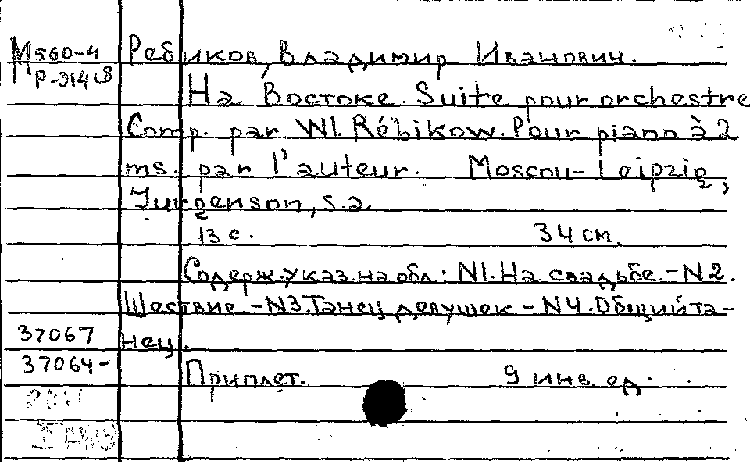 М 560-4 Ребиков, Владимир Иванович.
Р-314
На Востоке. Suite pour orchestre
Comp. par Wl. Rébikow. Pour piano à 2
ms. par l'auteur. Moscou-Leipzig,
Jurgenson, s.a.
13 с. 34 см.
Содерж. указ. на обл.: N1. На свадьбе. - N2.
Шествие - N3. Танец девушек - N4. Общий та-
37067 нец.
37064-
Приплет. 9 инв. ед.